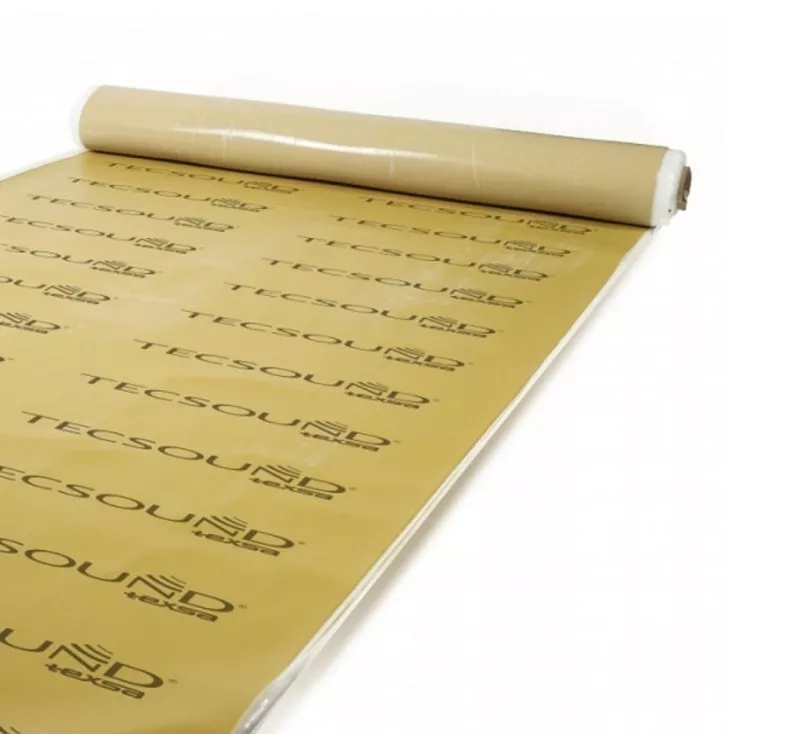 TECSOUND
TECSOUND
TECSOUND
TECSOUND
texsa
TECSOUND
texsa
TECSOUND
texsa
TECSOUND
texsa
TECSOUND
texsa
TECSOUND
texsa
TECSOUND
texsa
TECSOUND®
texsa
TECSOUND®
texsa
TECSOUND®
texsa
TECSOUND®
texsa
SOUND®
texsa
UND®
texsa